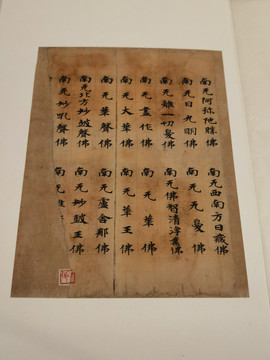 南无阿弥陀䏶佛　南无西南方日藏佛
南无日光明佛　南无无憂佛
南无離一切憂佛　南无佛智清淨業佛
南无畫作佛　南无華佛
南无大華佛　南无華王佛
南无華聲佛　南无盧舍那佛
南无北方妙鼓聲佛　南无妙鼓王佛
南无妙吼聲佛　南无妙